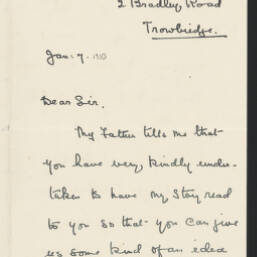 2 Bradley Road
Trowbridge.
Jan. 7. 1910
Dear Sir.
My Father tells me that
you have very kindly under-
taken to have my Story read
to you so that you can give
us some kind of an idea